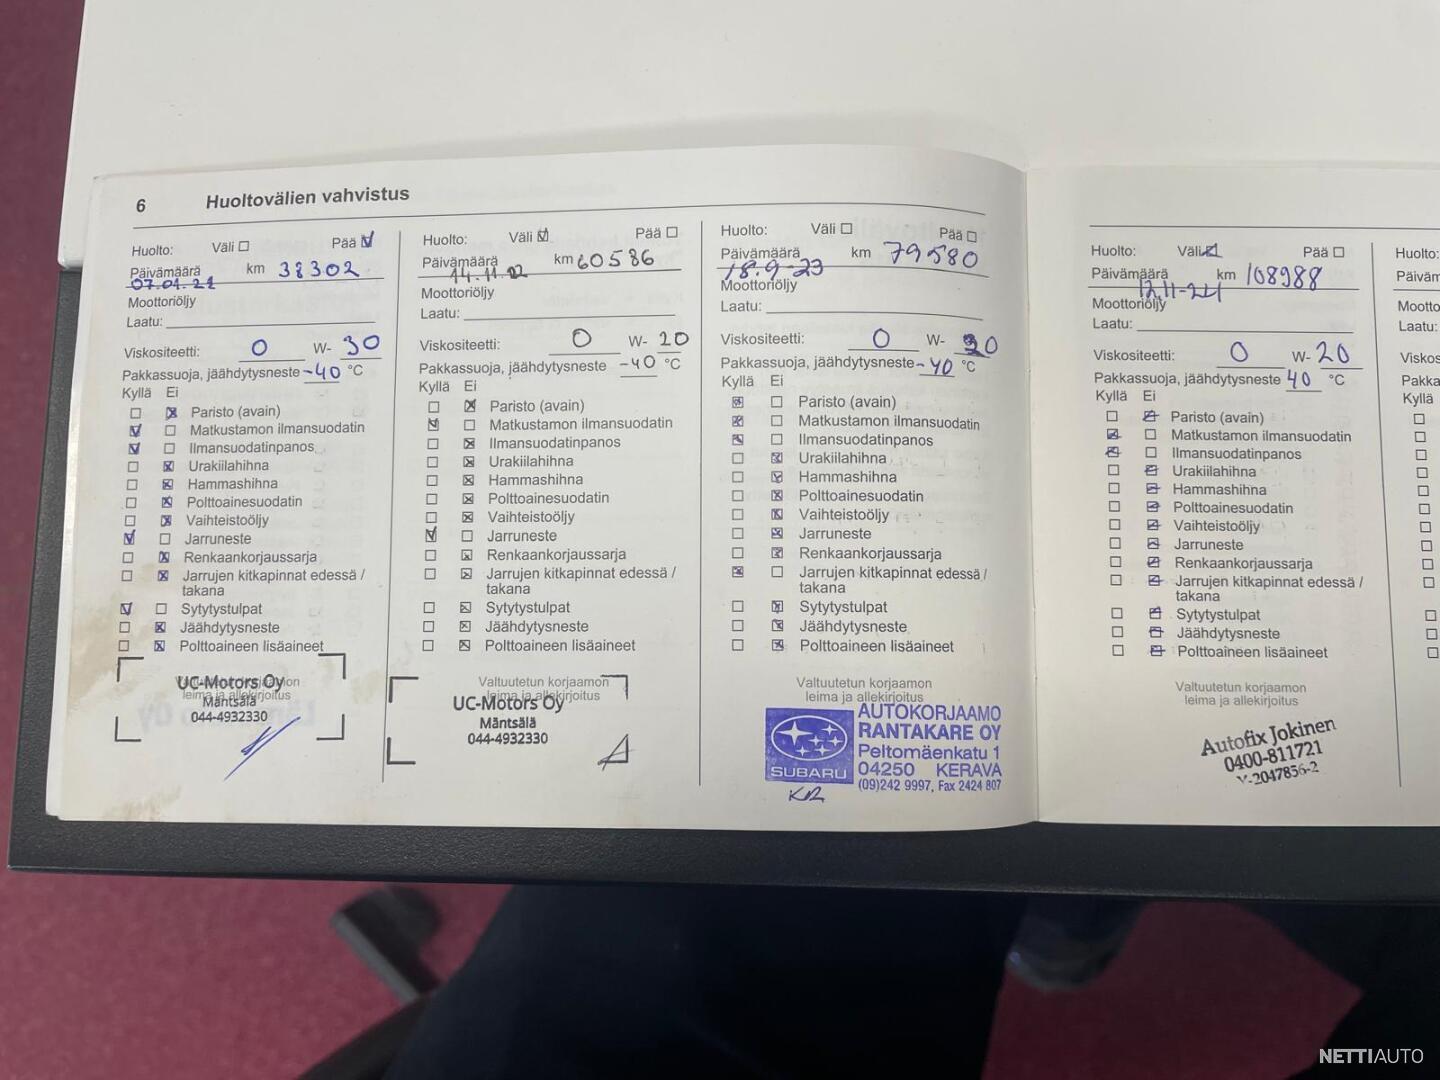 6 Huoltovälien vahvistus
Huolto: Väli Pää
Päivämäärä km 38302
07.01.21
Moottoriöljy
Laatu:
Viskositeetti: 0 W- 30
Pakkassuoja, jäähdytysneste -40 °C
Kyllä Ei
Paristo (avain)
Matkustamon ilmansuodatin
Ilmansuodatinpanos
Urakiilahihna
Hammashihna
Polttoainesuodatin
Vaihteistoöljy
Jarruneste
Renkaankorjaussarja
Jarrujen kitkapinnat edessä /
takana
Sytytystulpat
Jäähdytysneste
Polttoaineen lisäaineet
UC-Motors Oy
leima ja allekirjoitus
Mäntsälä
044-4932330
Huolto: Väli Pää
Päivämäärä km 60586
14.11.22
Moottoriöljy
Laatu:
Viskositeetti: 0 W- 20
Pakkassuoja, jäähdytysneste -40 °C
Kyllä Ei
Paristo (avain)
Matkustamon ilmansuodatin
Ilmansuodatinpanos
Urakiilahihna
Hammashihna
Polttoainesuodatin
Vaihteistoöljy
Jarruneste
Renkaankorjaussarja
Jarrujen kitkapinnat edessä /
takana
Sytytystulpat
Jäähdytysneste
Polttoaineen lisäaineet
Valtuutetun korjaamon
leima ja allekirjoitus
UC-Motors Oy
Mäntsälä
044-4932330
Huolto: Väli Pää
Päivämäärä km 79580
18.9-23
Moottoriöljy
Laatu:
Viskositeetti: 0 W- 20
Pakkassuoja, jäähdytysneste -40 °C
Kyllä Ei
Paristo (avain)
Matkustamon ilmansuodatin
Ilmansuodatinpanos
Urakiilahihna
Hammashihna
Polttoainesuodatin
Vaihteistoöljy
Jarruneste
Renkaankorjaussarja
Jarrujen kitkapinnat edessä /
takana
Sytytystulpat
Jäähdytysneste
Polttoaineen lisäaineet
Valtuutetun korjaamon
leima ja allekirjoitus
SUBARU
AUTOKORJAAMO
RANTAKARE OY
Peltomäenkatu 1
04250 KERAVA
(09)242 9997, Fax 2424 807
Huolto: Väli Pää
Päivämäärä km 108988
12.11-24
Moottoriöljy
Laatu:
Viskositeetti: 0 W- 20
Pakkassuoja, jäähdytysneste 40 °C
Kyllä Ei
Paristo (avain)
Matkustamon ilmansuodatin
Ilmansuodatinpanos
Urakiilahihna
Hammashihna
Polttoainesuodatin
Vaihteistoöljy
Jarruneste
Renkaankorjaussarja
Jarrujen kitkapinnat edessä /
takana
Sytytystulpat
Jäähdytysneste
Polttoaineen lisäaineet
Valtuutetun korjaamon
leima ja allekirjoitus
Autofix Jokinen
0400-811721
Y-2047856-2
Huolto:
Laatu:
Kyllä
NETTIAUTO